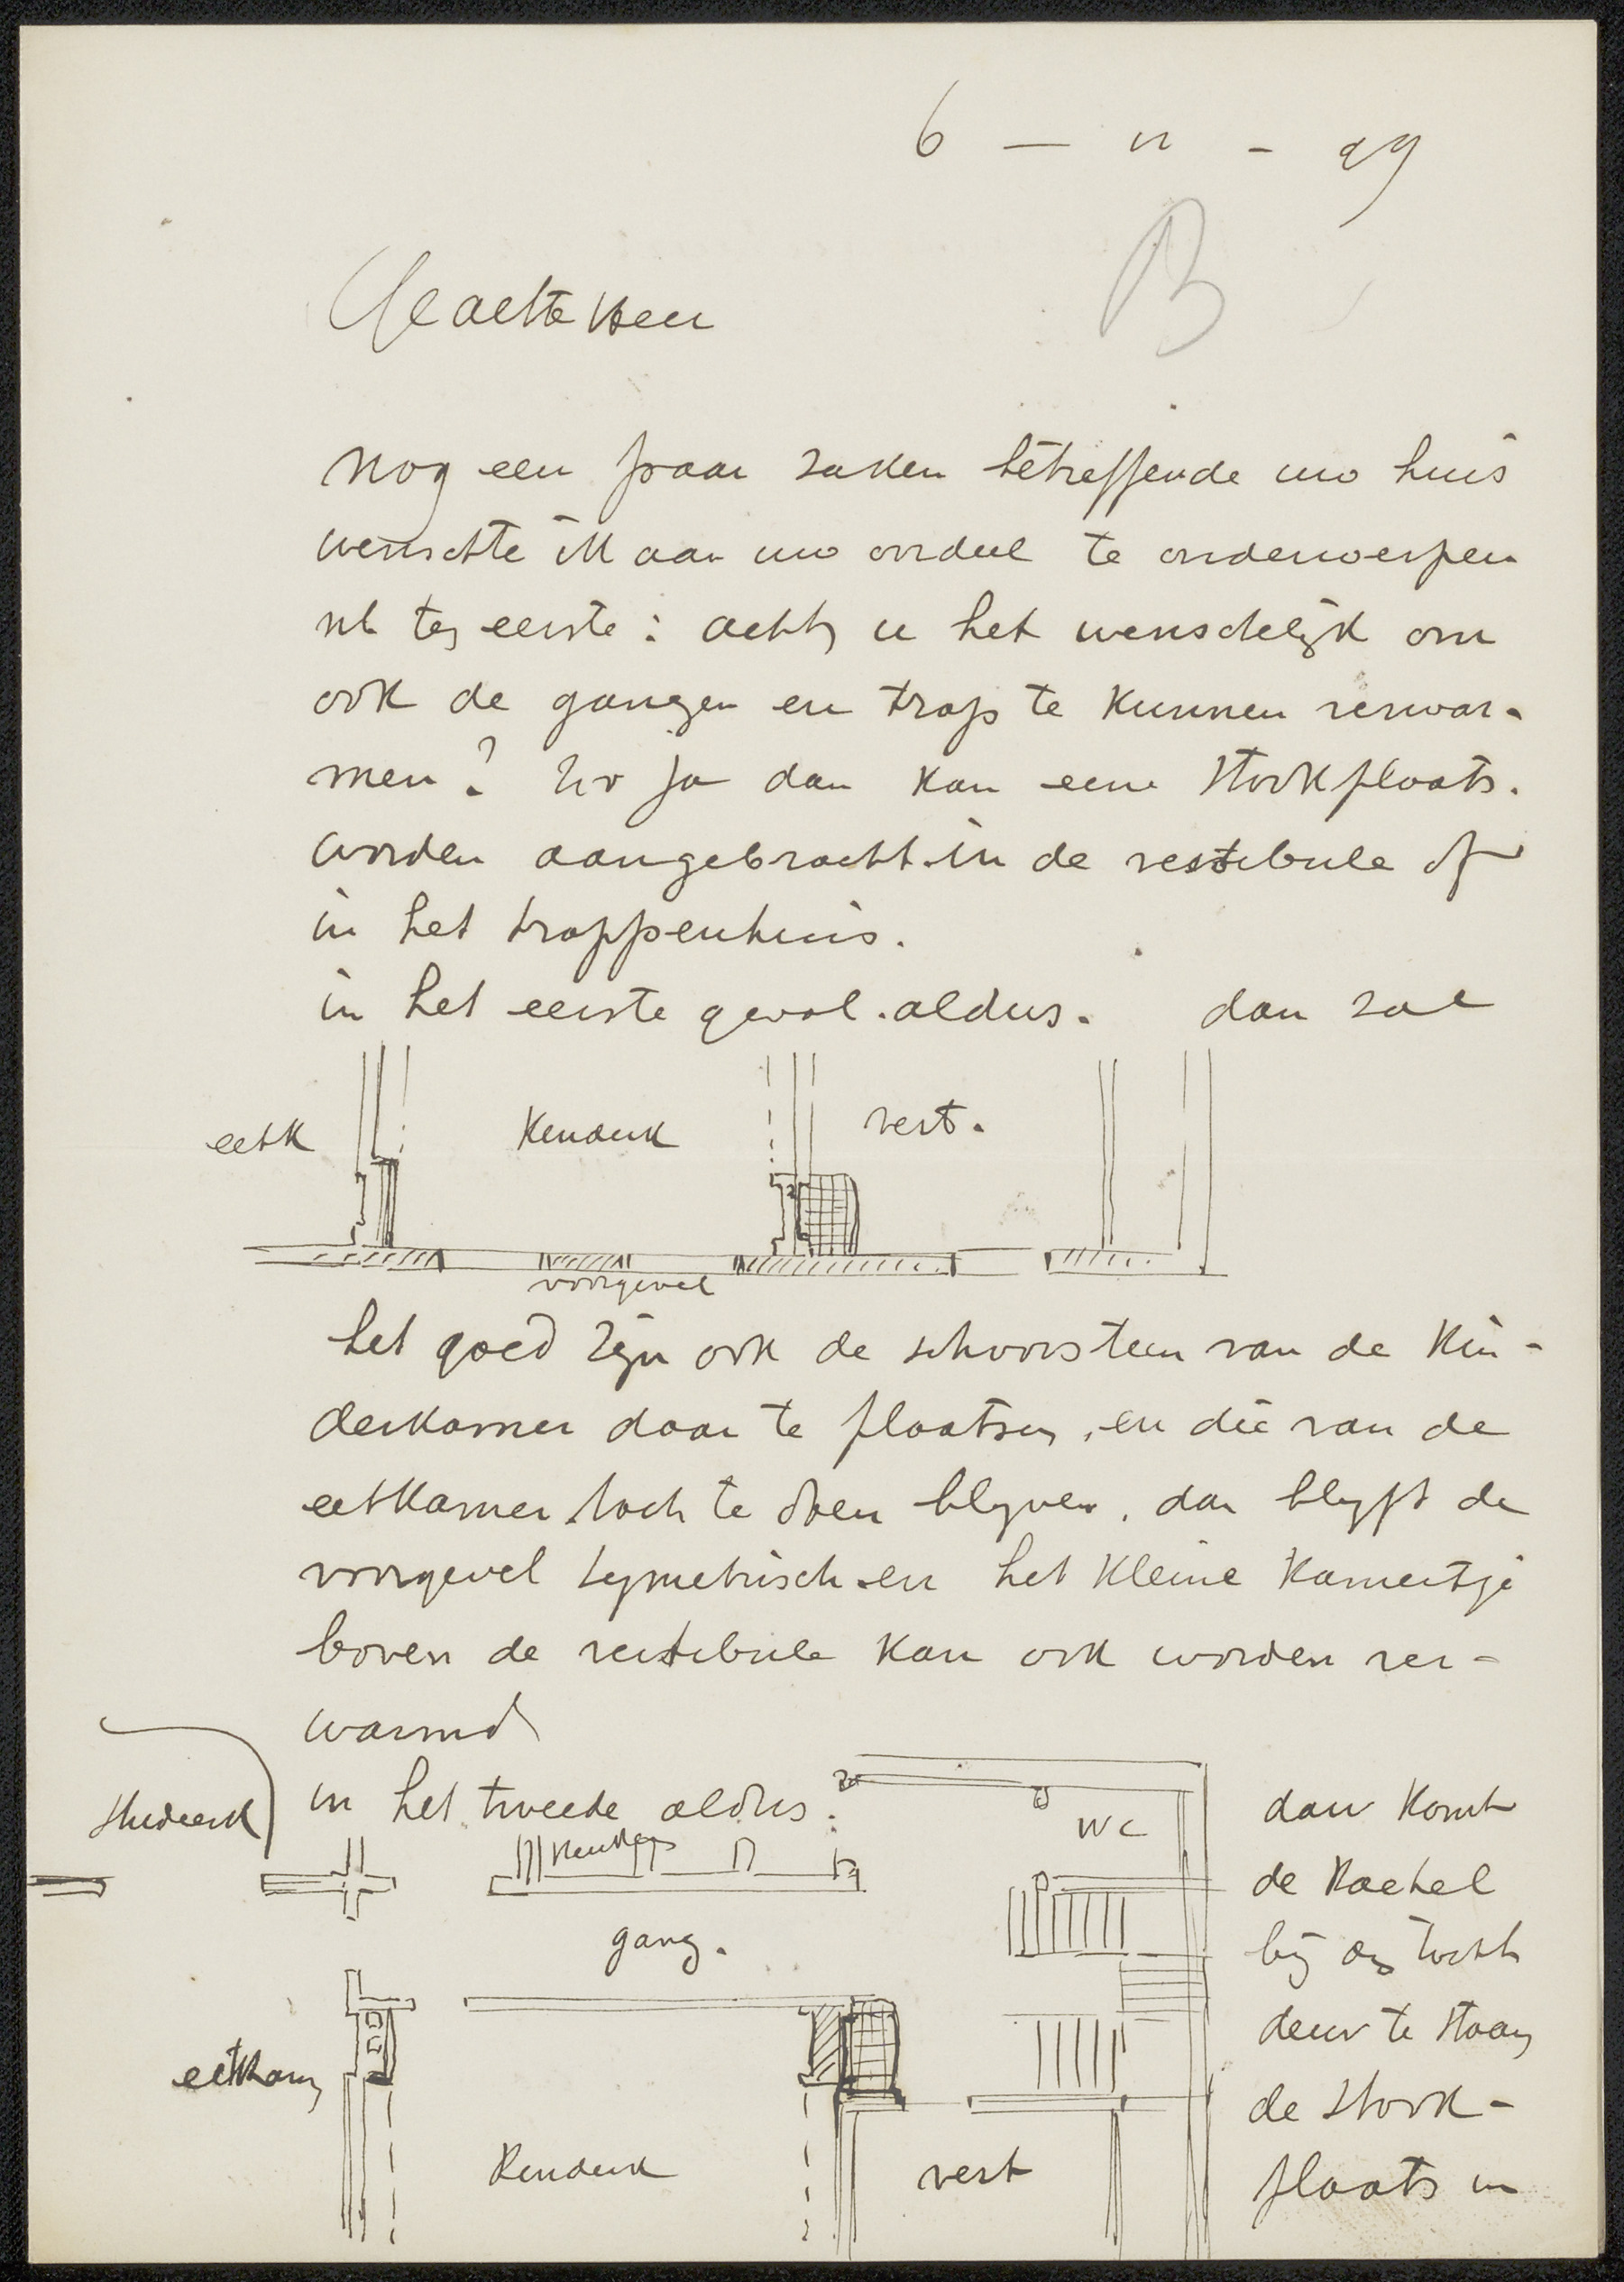 6 – 11 – 99
B
Geachte Heer
Nog een paar zaken betreffende uw huis
wenschte ik aan uw oordeel te onderwerpen
nl ten eerste: acht u het wenschelijk om
ook de gangen en trap te kunnen verwar-
men? Zoo ja dan kan eene stookplaats.
worden aangebracht in de vestibule of
in het trappenhuis.
in het eerste geval. aldus. dan zal
eetk kinderk vest.
voorgevel
het goed zijn ook de schoorsteen van de kin-
derkamer daar te plaatsen, en die van de
eetkamer toch te doen blijven. dan blijft de
voorgevel symetrisch en het kleine kamertje
boven de vestibule kan ook worden ver-
warmd
in het tweede aldus:
studeerk
wc
gang.
eetkam
kinderk vest
dan komt
de kachel
bij de tocht
deur te staan
de stook-
plaats in